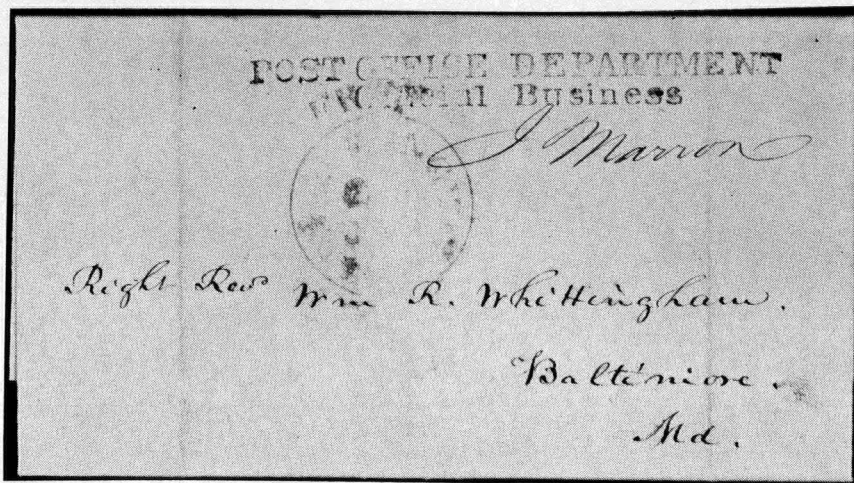 POST OFFISE DEPARTMENT
Official Business
J Marron
Right Revd Wm R. Whittingham.
Baltimore.
Md.